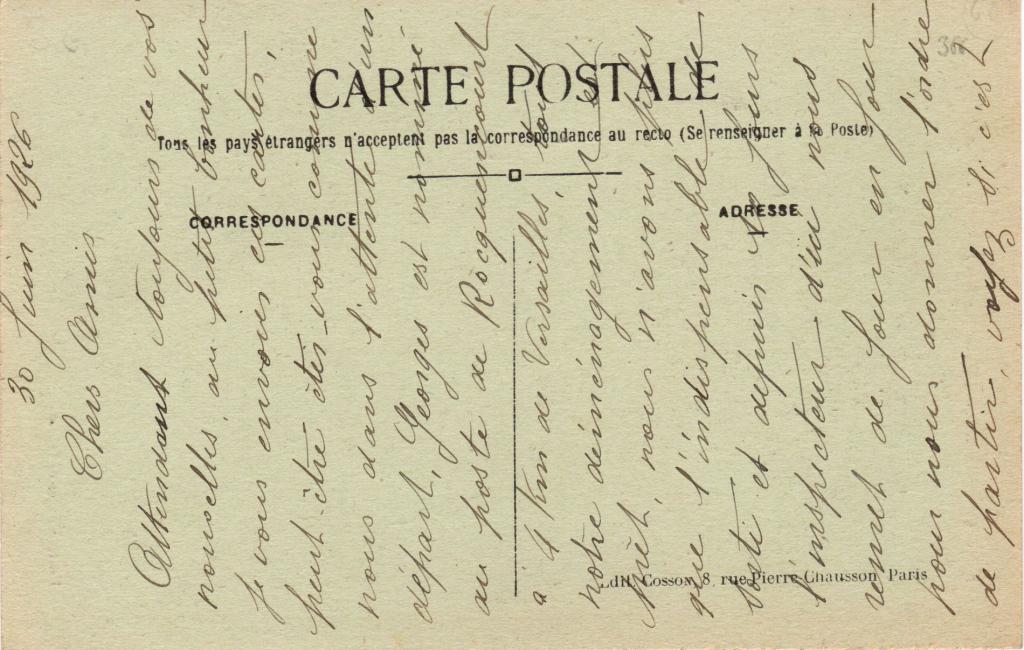 CARTE POSTALE
Tous les pays étrangers n'acceptent pas la correspondance au recto (Se renseigner à la Poste)
CORRESPONDANCE
ADRESSE
Edit. Cosson, 8, rue Pierre-Chausson Paris
366
30 Juin 1926
Chers Amis
Attendant toujours de vos
nouvelles, au petit bonheur
je vous envoie ces cartes,
peut-être êtes-vous comme
nous dans l'attente d'un
départ, Georges est nommé
au poste de Rocquencourt
à 4 km de Versailles, tout
notre déménagement est
prêt, nous n'avons plus
que l'indispensable de
sorti et depuis 10 jours
l'inspecteur d'ici nous
remet de jour en jour
pour nous donner l'ordre
de partir, voyez si c'est